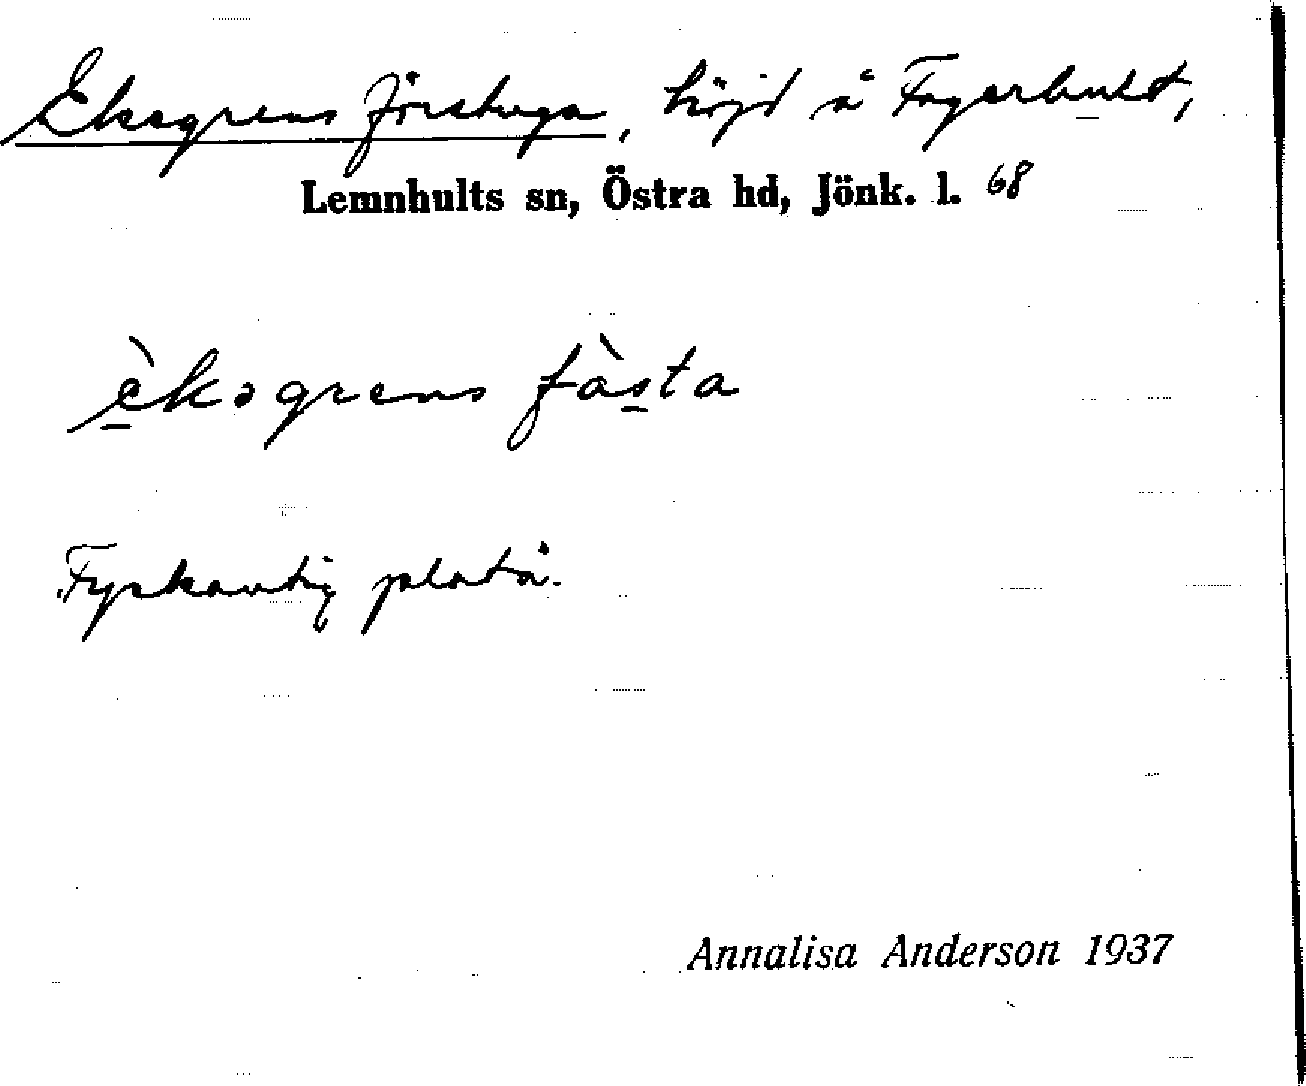 Eksgrens förstuga, höjd å Fagerhult,
Lemnhults sn, Östra hd, Jönk. l. 68
èksgrens fàsta
Fyrkantig platå.
Annalisa Anderson 1937